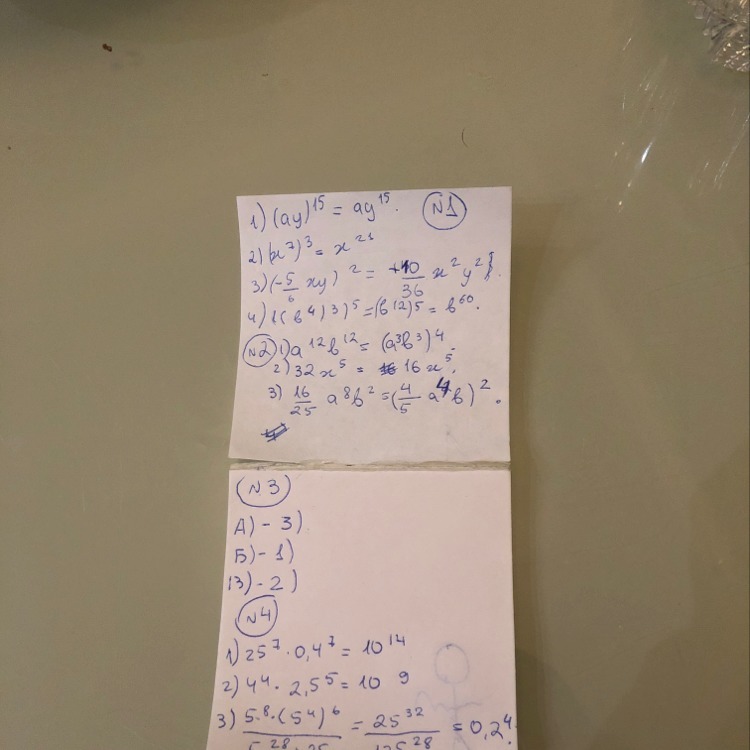 1) (ay)¹⁵ = ay¹⁵. №1
2) (x⁷)³ = x²¹
3) (-5/6 xy)² = +10/36 x²y²
4) ((b⁴)3)⁵ = (b¹²)⁵ = b⁶⁰.
№2 1) a¹²b¹² = (a³b³)⁴
2) 32x⁵ = 16x⁵.
3) 16/25 a⁸b² = (4/5 a⁴b)².
№3
А) - 3)
Б) - 1)
В) - 2)
№4
1) 25⁷ · 0,4⁷ = 10¹⁴
2) 4⁴ · 2,5⁵ = 10⁹
3) 5⁸·(5⁴)⁶ / 5²⁸ · 25 = 25³² / 125²⁸ = 0,2⁴.